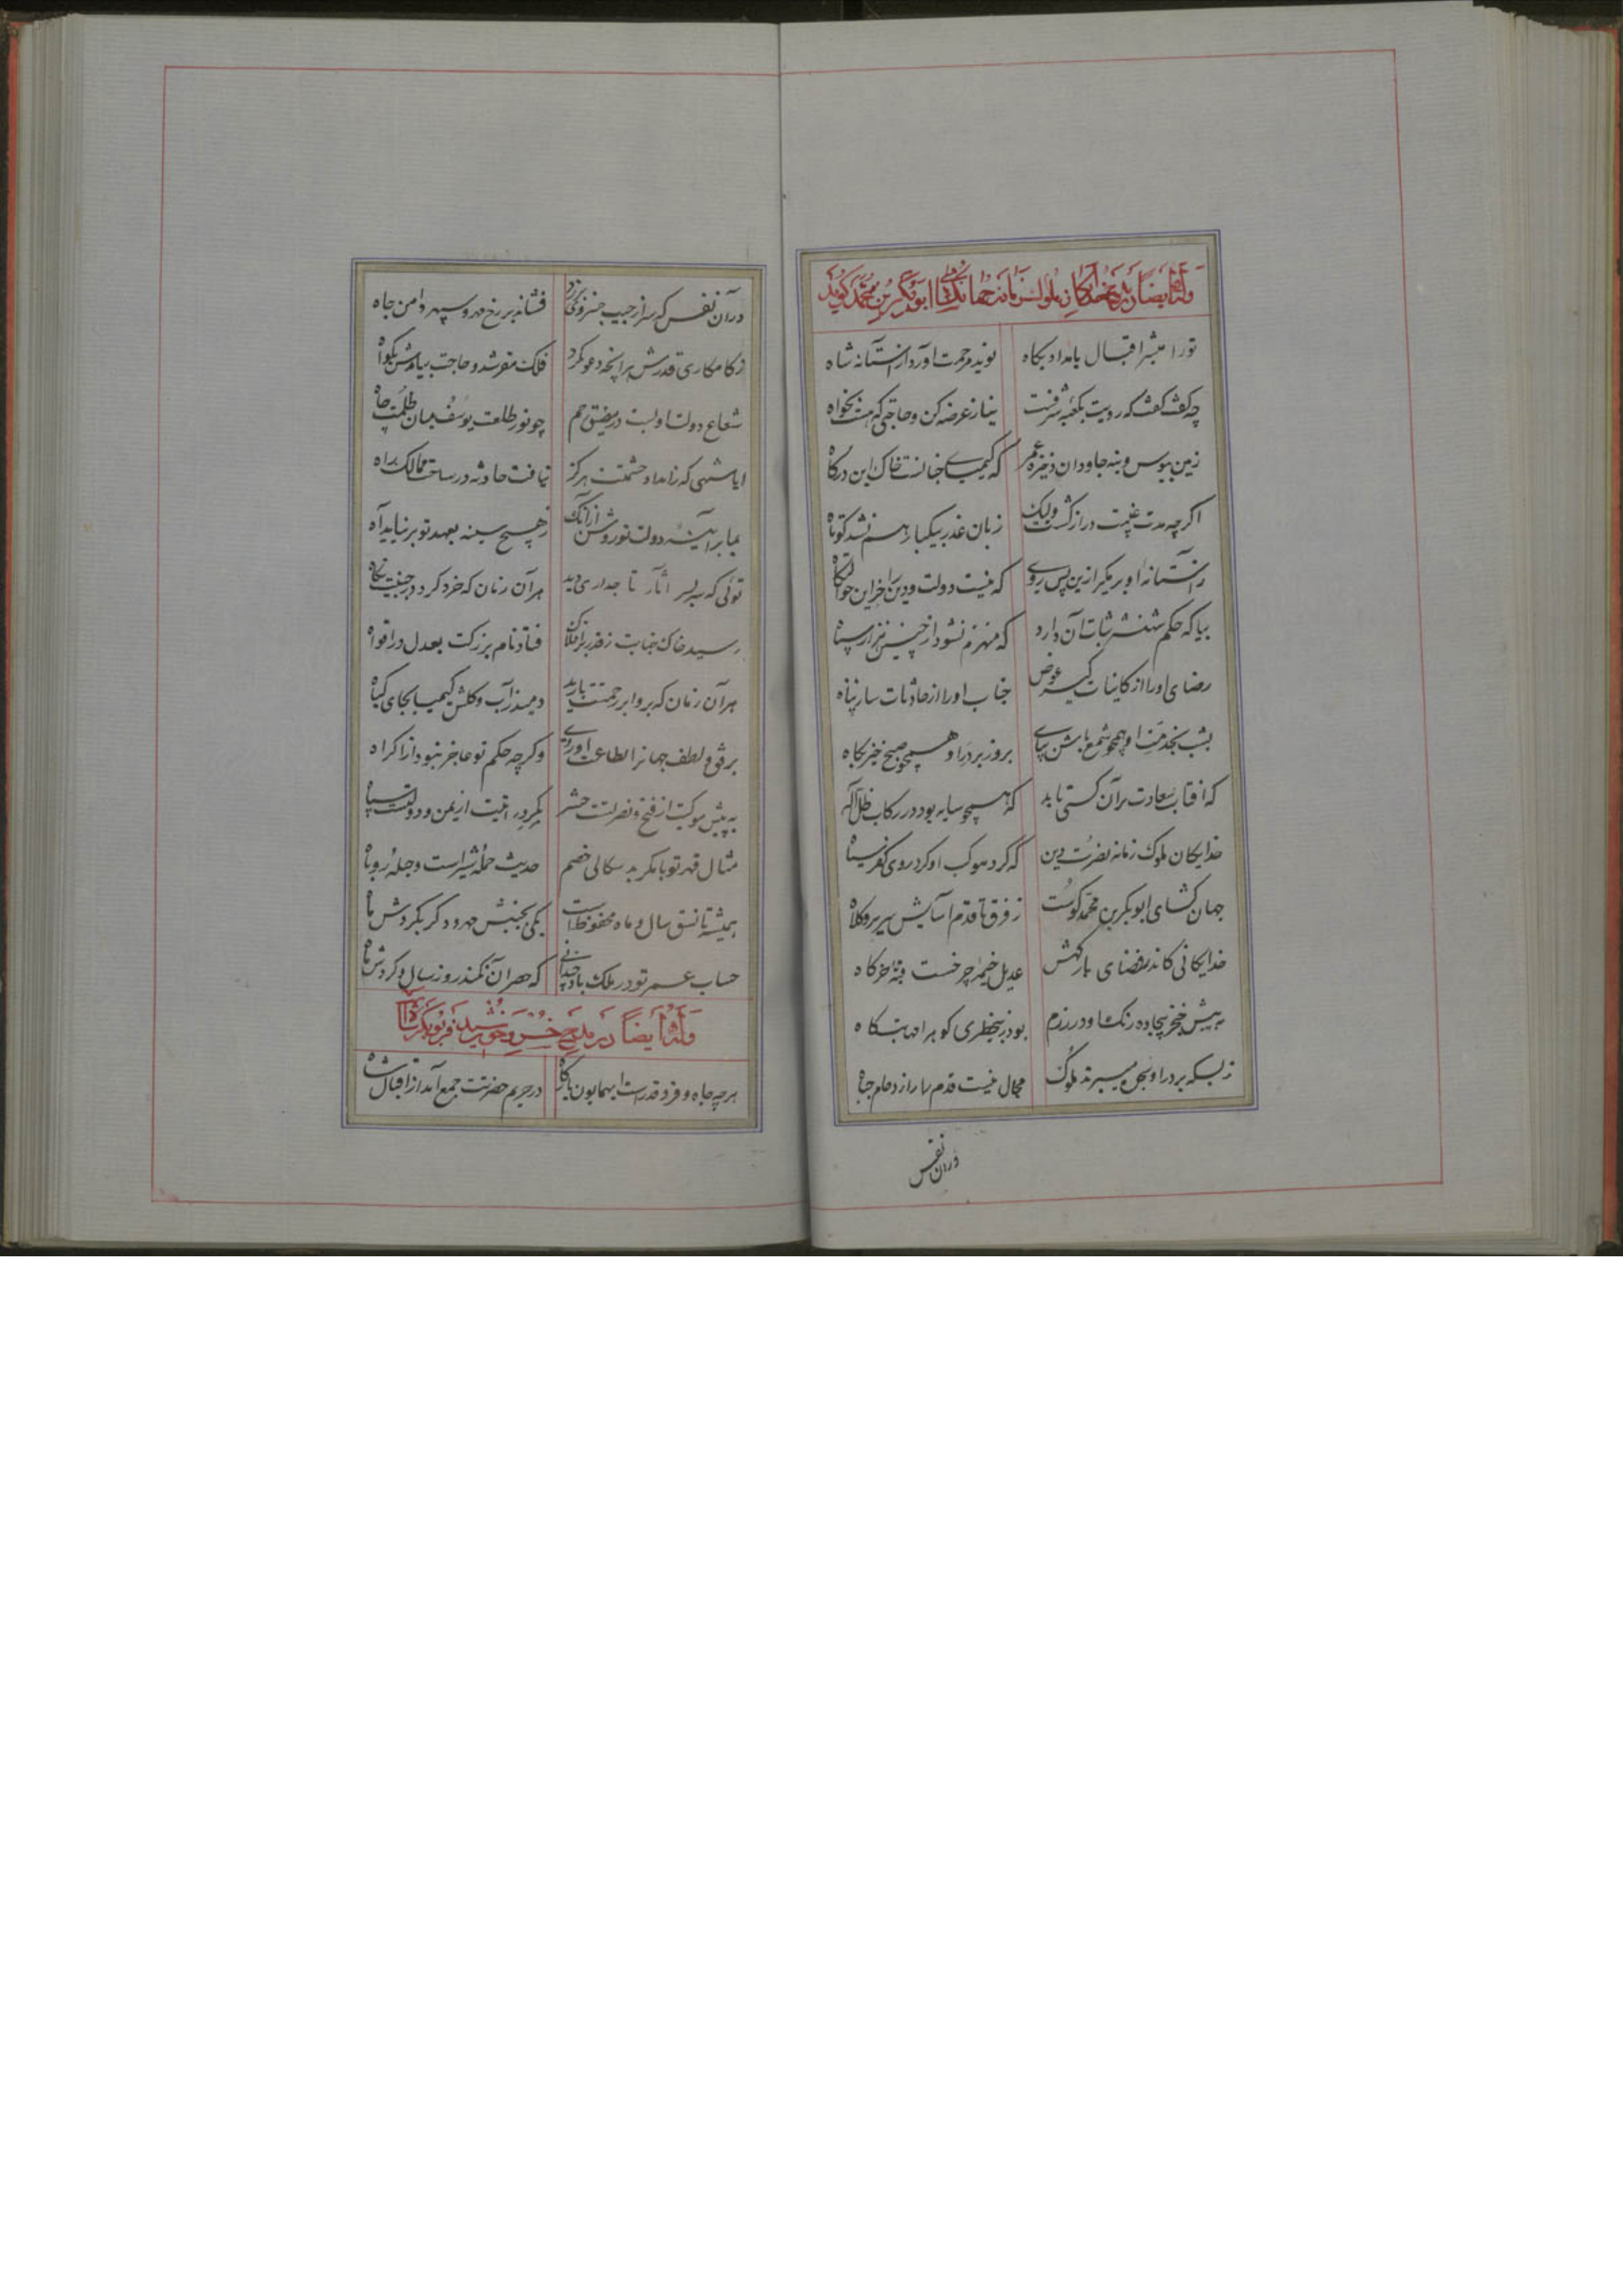 وله ایضا در مدح خدایگان ملوک زمانه جهانگشای ابوبکر بن محمد گوید
تو را مبشر اقبال بامداد بگاه نوید مرحمت آورد از آستانه شاه
چه گفت گفت که رویت بکعبه شرفست نیاز عرضه کن و حاجتی که هست بخواه
زمین ببوس و بنه جاودان ذخیره عمر که کیمیای حیاتست خاک این درگاه
اگرچه مدت غیبت دراز گشت ولیک زبان عذر بیکبار هم نشد کوتاه
ز آستانه او برمگیر ازین پس روی که نیست دولت و دین را جز این حوالتگاه
بیا که حکم شهنشه ثبات آن دارد که منهزم نشود از چنین هزار سپاه
رضای او را از کاینات گیر عوض جناب او را از حادثات ساز پناه
بشب بخدمت او همچو شمع باش بپای بروز بر در او همچو صبح خیز بگاه
که افتاب سعادت بر آن کسی تابد که همچو سایه بود در رکاب ظل اله
خدایگان ملوک زمانه نصرت دین که گرد موکب او کرد روی کفر سیاه
جهان گشای ابوبکر بن محمد کوست ز فرق تا قدم آسایش سریر و کلاه
خدایگانی کاندر فضای بارگهش عدیل خیمه چرخست قبه خرگاه
به پیش خنجر بیجاده رنگ او در رزم بود ز بیخطری کوه را مهابت کاه
ز بسکه بر در او سجده میبرند ملوک مجال نیست قدم را از ازدحام جباه
در آن نفس
در آن نفس که سر از جیب خسروی برزد فشاند بر رخ مهر و سپهر دامن جاه
ز کامکاری قدرش هر آنچه دعوی کرد فلک مقر شد و حاجت نیامدش بگواه
شعاع دولت اولیت در مضیق رحم چو نور طلعت یوسف میان ظلمت چاه
ایا شهی که ز امداد حشمتت هرگز نیافت حادثه در ساحت ممالک راه
غبار آینه دولت تو روشن از آنک ز هیچ سینه بعهد تو برنیاید آه
توئی که بر پسر آثار تاجداری دید هر آن زمان که خرد کرد در جبینت نگاه
رسید خاک جنابت ز قدر بر افلاک فتاد نام بزرگت بعدل در افواه
هر آن زمان که برو ابر رحمتت بارید دمید ز آب و گلش کیمیا بجای گیاه
برفق و لطف جهانرا بطاعت آوردی وگرچه حکم تو عاجز نبود از اکراه
به پیش موکبت از فتح و نصرتست حشر بگرد رایتت از یمن و دولتست سپاه
مثال قهر تو با مکر بدسگالی خصم حدیث حمله شیر است و حیله روباه
همیشه تا نسق سال و ماه محفوظ است یکی بجنبش مهر و دگر بگردش ماه
حساب عمر تو در ملک باد چندانی که حصر آن نکند روز سال و گردش ماه
وله ایضا در مدح خسرو خورشید فر بوبکر شاه
هر چه جاه و فر و قدرست ای همایون بارگاه در حریم حضرتت جمع آمد از اقبال شاه